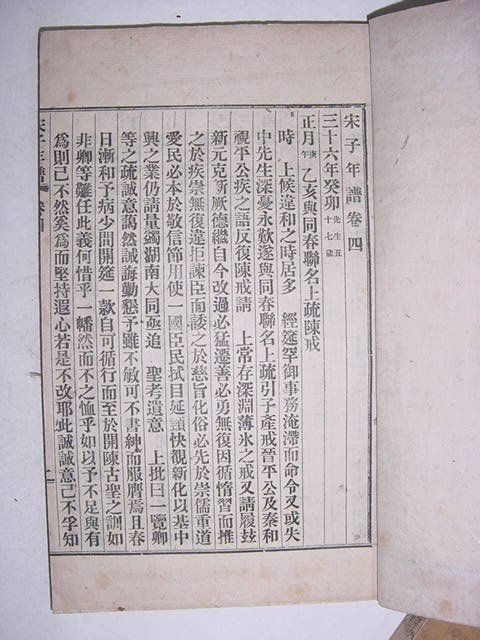 宋子年譜卷四
三十六年癸卯先生五十七歲
正月庚午乙亥與同春聯名上疏陳戒
時 上候違和之時居多 經筵罕御事務淹滯而命令又或失
中先生深憂永歎遂與同春聯名上疏引子產戒晉平公及秦和
視平公疾之語反復陳戒請 上常存深淵薄氷之戒又請履玆
新元克新厥德繼自今改過必猛遷善必勇無復因循惰習而推
之於疾祟無復違拒諫臣而諉之於慈旨化俗必先於崇儒重道
愛民必本於敬信節用使一國臣民拭目延頸快覩新化以基中
興之業仍請量蠲湖南大同亟追 聖考遺意 上批曰一覽卿
等之疏誠意藹然誠誨勤懇予雖不敏可不書紳而服膺焉且春
日漸和予病少間開筵一款自可循行而至於開陳古聖之訓如
非卿等難任此義何惜乎一幡然而不之恤乎如以予不足與有
爲則已不然奚爲而堅持遐心若是不改耶此誠誠意已不孚知